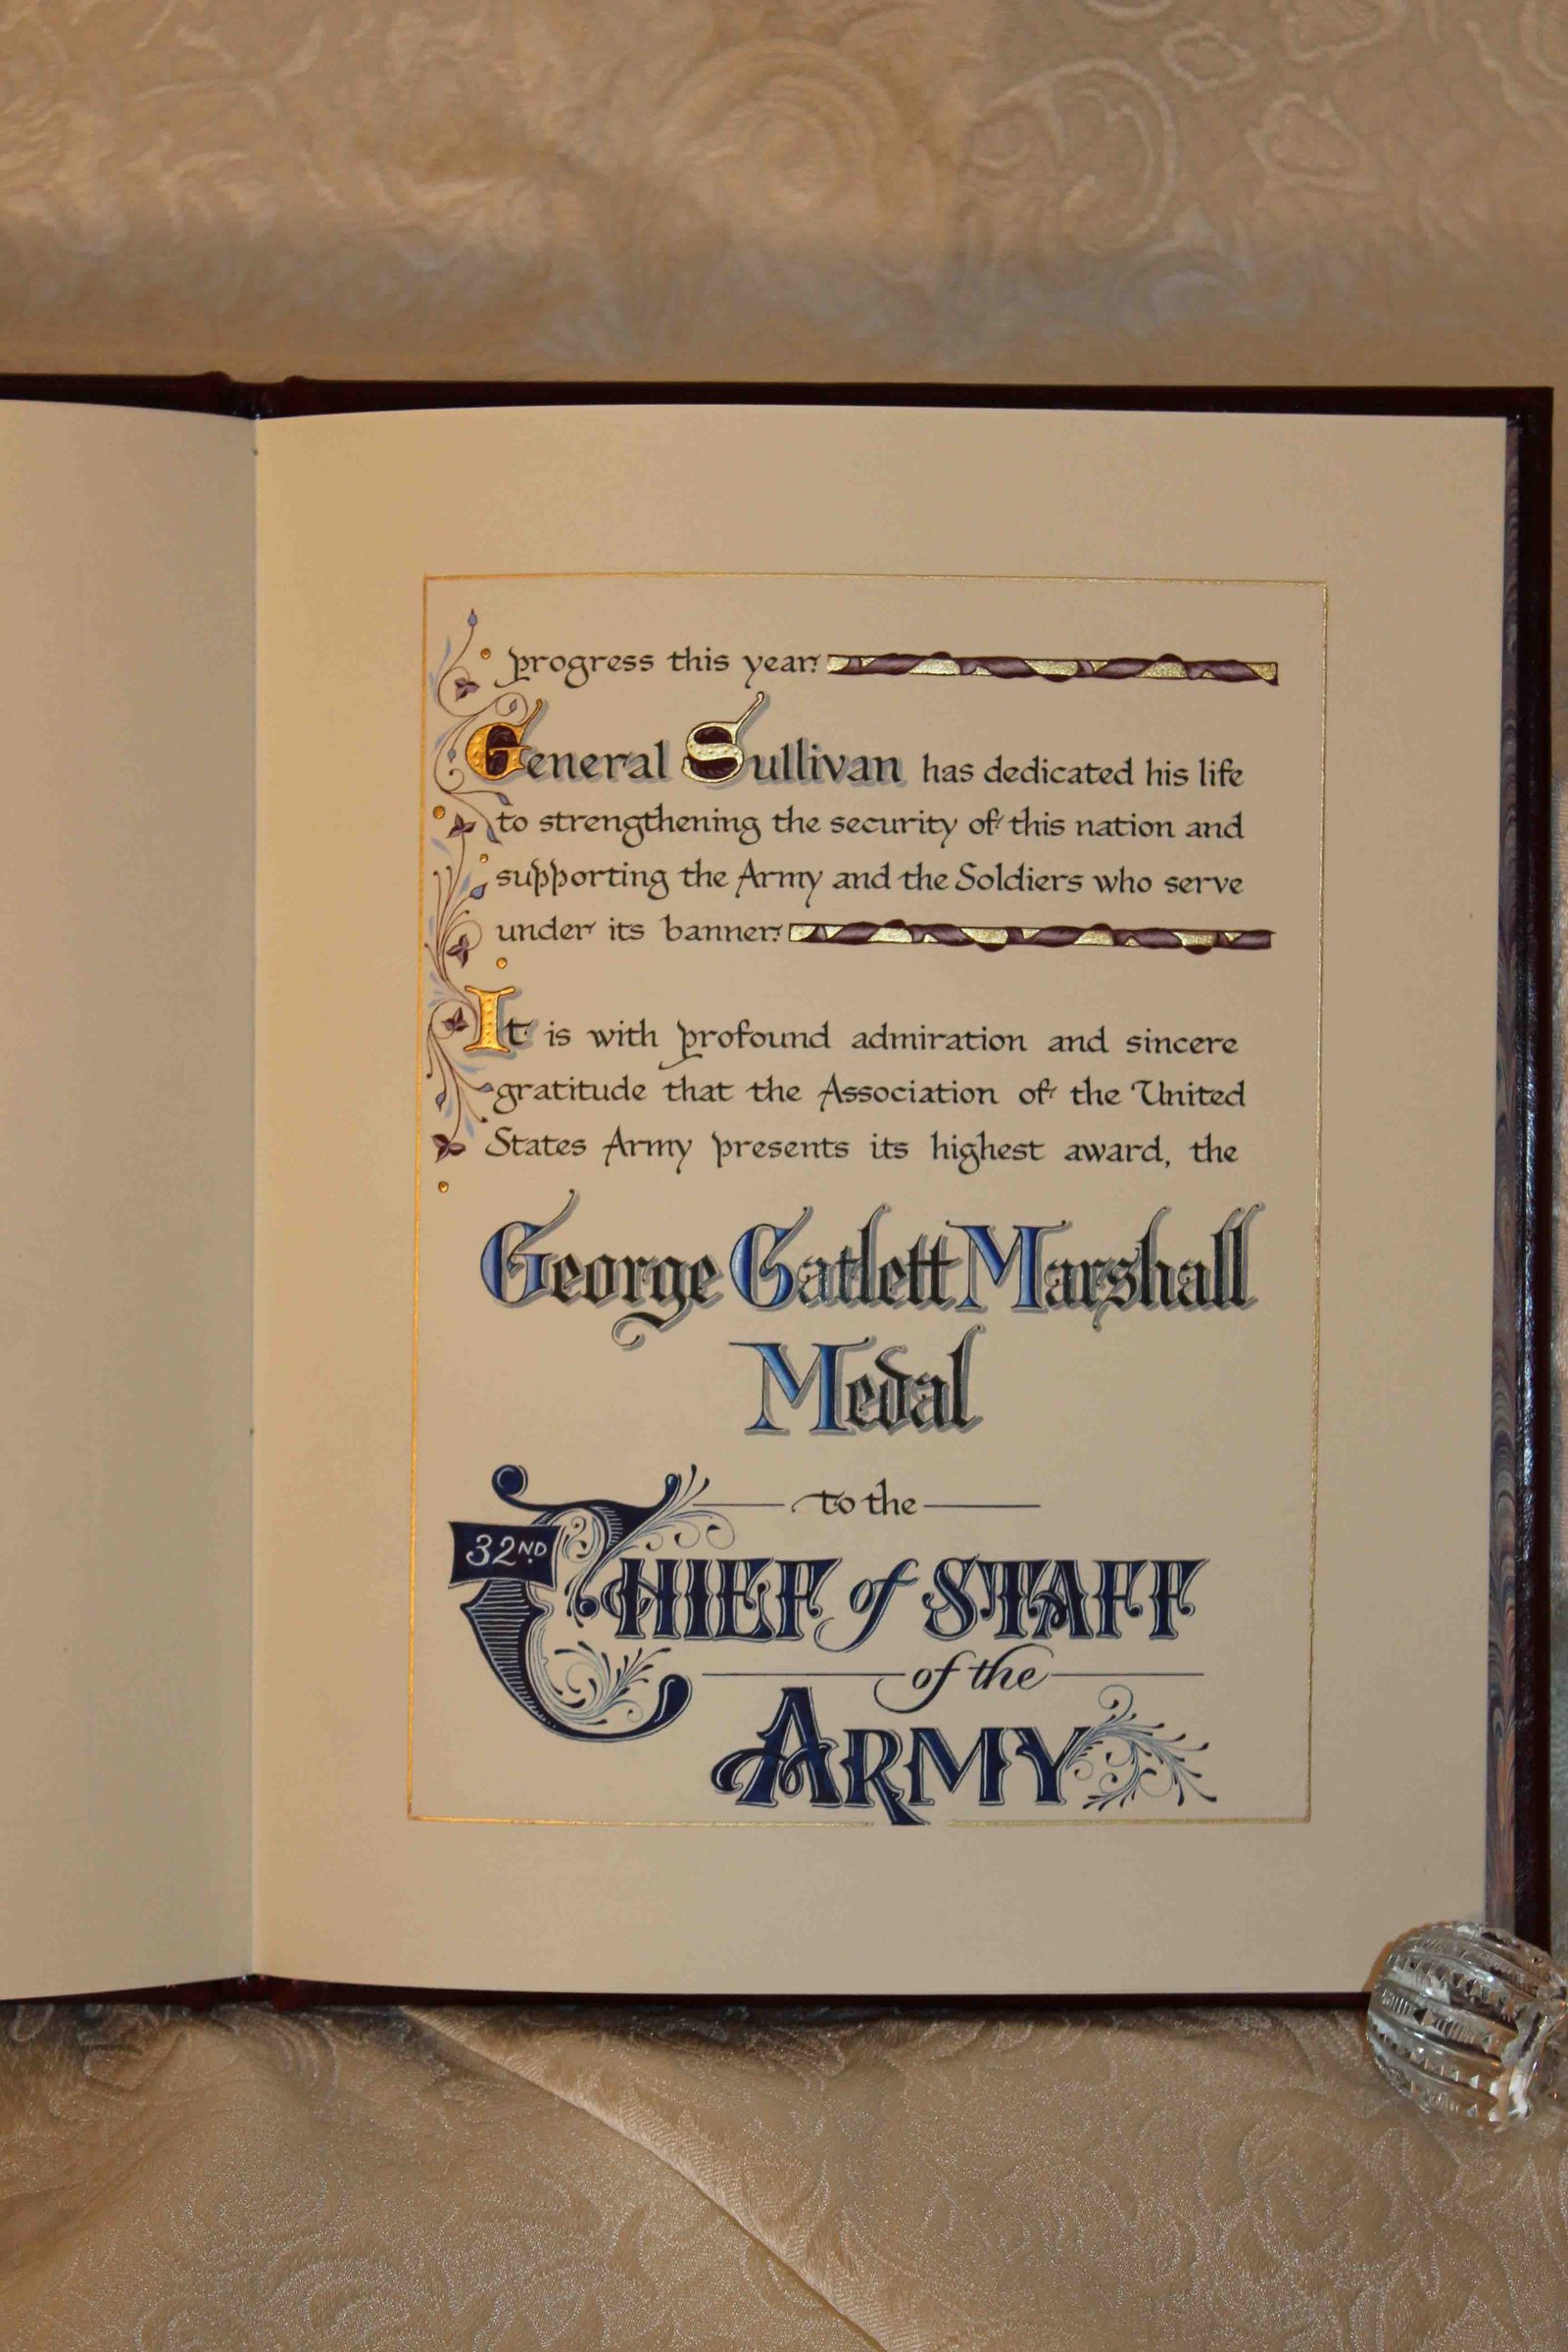 progress this year.
General Sullivan has dedicated his life
to strengthening the security of this nation and
supporting the Army and the Soldiers who serve
under its banner.
It is with profound admiration and sincere
gratitude that the Association of the United
States Army presents its highest award, the
George Catlett Marshall
Medal
to the
32ND
CHIEF of STAFF
of the
ARMY